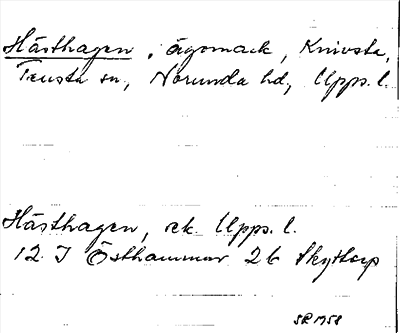 Hästhagen, ägomark, Knivsta,
Tensta sn, Norunda hd, Upps. l.
Hästhagen, ek. Upps. l.
12 I Östhammar 26 Skyttorp
SR 1958